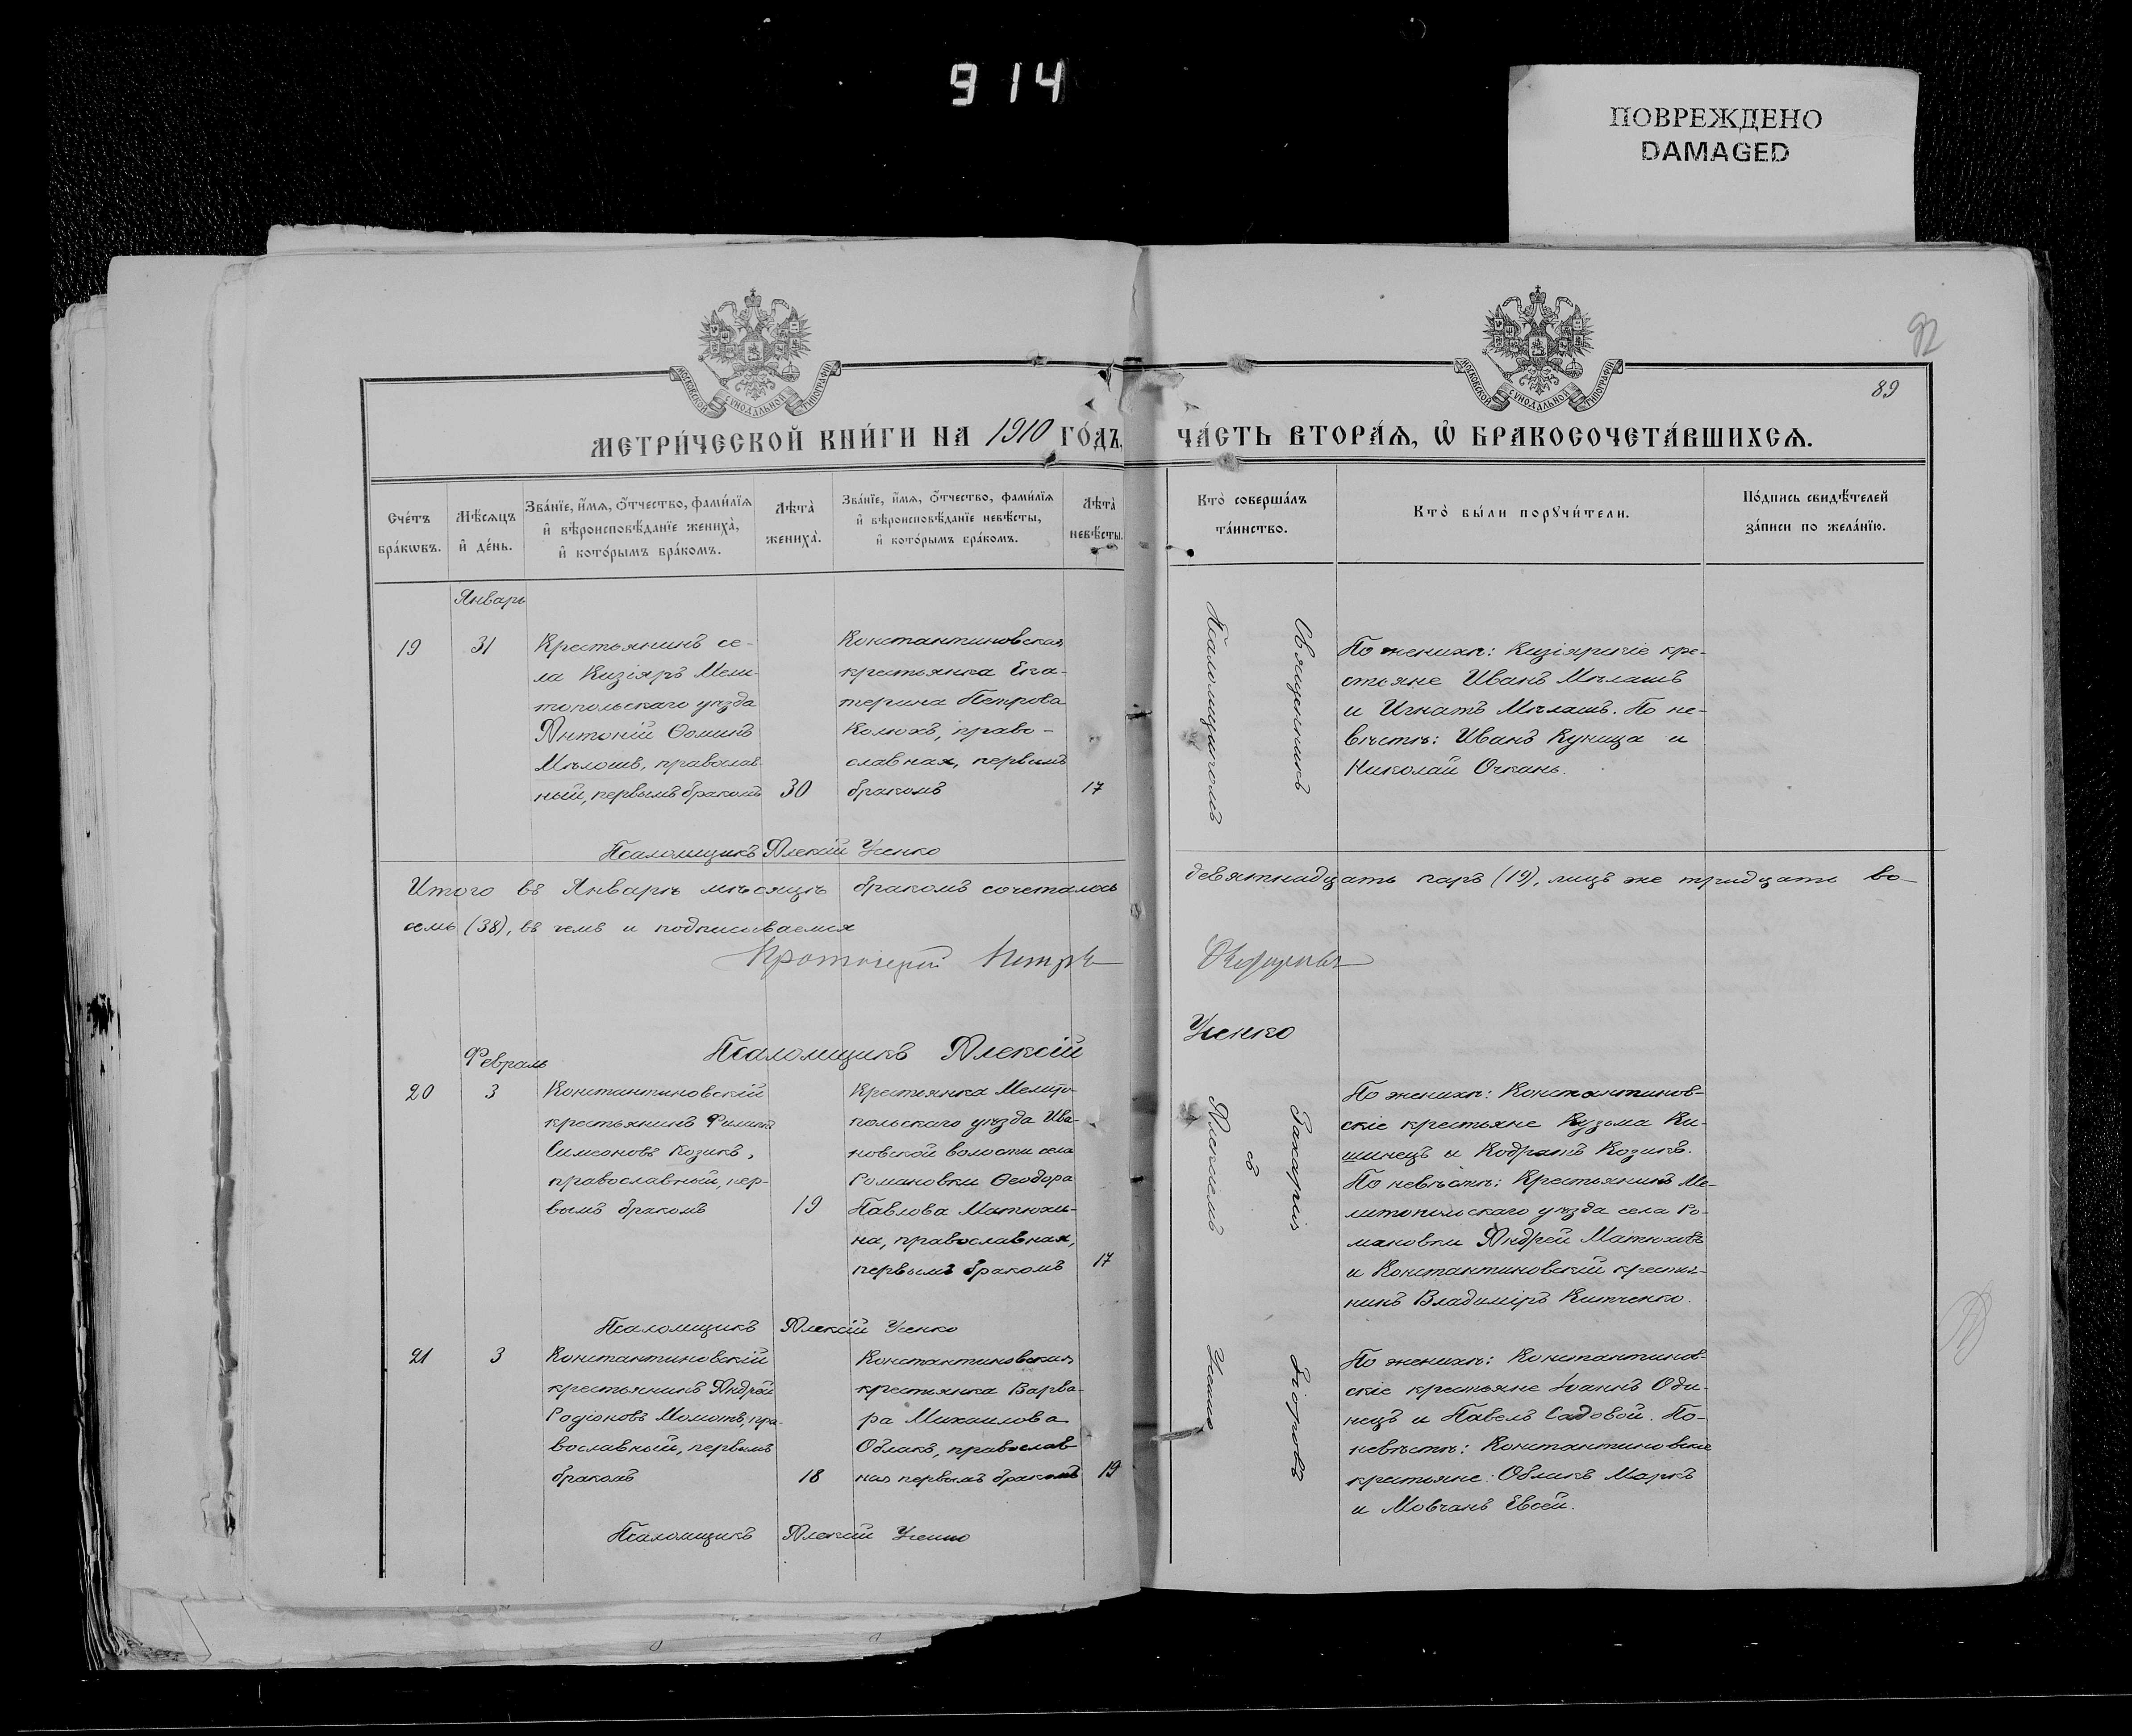 914
ПОВРЕЖДЕНО
DAMAGED
92
89
МОСКОВСКОЙ СѴНОДАЛЬНОЙ ТИПОГРАФІИ
МОСКОВСКОЙ СѴНОДАЛЬНОЙ ТИПОГРАФІИ
МЕТРИ́ЧЕСКОЙ КНИ́ГИ НА 1910 ГО́ДЪ, ЧА́СТЬ ВТОРА́Ѧ, Ѡ҆ БРАКОСОЧЕТА́ВШИХСѦ.
Сче́тъ
бра́кѡвъ.
Мѣ́сѧцъ
и҆ де́нь.
Зва́нїе, и҆́мѧ, о҆́тчество, фами́лїѧ
и҆ вѣроисповѣ́данїе жениха̀,
и҆ кото́рымъ бра́комъ.
Лѣта̀
жениха̀.
Зва́нїе, и҆́мѧ, о҆́тчество, фами́лїѧ
и҆ вѣроисповѣ́данїе невѣ́сты,
и҆ кото́рымъ бра́комъ.
Лѣта̀
невѣ́сты.
Кто̀ соверша́лъ
та́инство.
Кто̀ бы́ли порꙋчи́тели.
По́дпись свидѣ́телей
за́писи по жела́нїю.
Январь
19
31
Крестьянинъ се-
ла Кизіяръ Мели-
топольскаго уѣзда
Антоній Ѳоминъ
Мѣлошъ, православ-
ный, первымъ бракомъ
30
Константиновская
крестьянка Ека-
терина Петрова
Колюхъ, право-
славная, первымъ
бракомъ
17
По женихѣ: Кизіярскіе кре-
стьяне Иванъ Мѣлашъ
и Игнатъ Мѣлашъ. По не-
вѣстѣ: Иванъ Куница и
Николай Очкань.
Псаломщикъ Алексій Усенко
Итого въ Январѣ мѣсяцѣ бракомъ сочеталось девятнадцать паръ (19), лицъ же тридцать во-
семь (38), въ чемъ и подписываемся
Протоіерей Петръ
Псаломщикъ Алексій Усенко
Февраль
20
3
Константиновскій
крестьянинъ Филипъ
Симеоновъ Козикъ,
православный, пер-
вымъ бракомъ
19
Крестьянка Мелито-
польскаго уѣзда Ива-
новской волости села
Романовки Ѳеодора
Павлова Матюхи-
на, православная,
первымъ бракомъ
17
По женихѣ: Константинов-
скіе крестьяне Кузьма Ки-
шинецъ и Кодратъ Козикъ.
По невѣстѣ: Крестьянинъ Ме-
литопольскаго уѣзда села Ро-
мановки Андрей Матюховъ
и Константиновскій крестья-
нинъ Владиміръ Китченко.
Псаломщикъ Алексій Усенко
21
3
Константиновскій
крестьянинъ Андрей
Родіоновъ Момотъ, пра-
вославный, первымъ
бракомъ
18
Константиновская
крестьянка Варва-
ра Михаилова
Облакъ, православ-
ная первымъ бракомъ
19
По женихѣ: Константинов-
скіе крестьяне Іоаннъ Оди-
нецъ и Павелъ Садовой. По-
невѣстѣ: Константиновскіе
крестьяне: Облакъ Маркъ
и Мовчанъ Евсей.
Псаломщикъ Алексій Усенко
Священникъ Захарія Гіорговъ
съ
Псаломщикомъ Алексіемъ Усенко